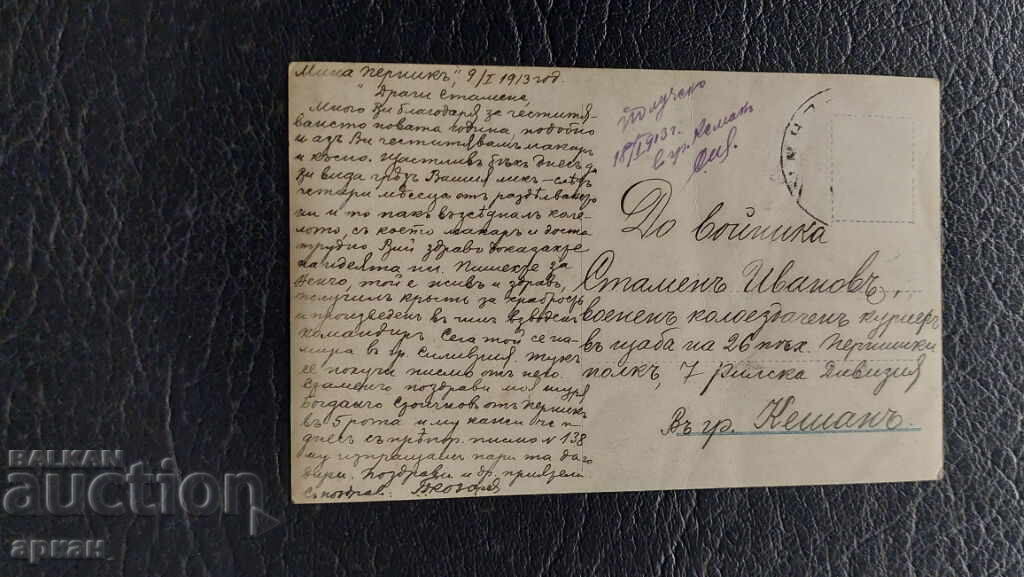 Мина Перникъ", 9/I 1913 год.
Драги Стамене,
Много Ви благодаря за честитя-
ванието новата година, подобно
и азъ Ви честитявамъ макаръ
и късно. Щастливъ бѣхъ днесъ да
Ви видя гърбъ Вашия ликъ - слѣдъ
четири мѣсеца отъ раздѣлванье
ни и то пакъ възсѣдналъ коле-
лото, съ което макаръ и доста
трудно, Вий здраво доказахте
на идеята ни. Пишехте за
Пенчо, той е живъ и здравъ,
получилъ кръстъ за храбрость
и произведенъ въ чинъ взводенъ
командиръ. Сега той се на-
мира въ гр. Силиврия. Тукъ
се получи писмо отъ него.
поздрави моя шуря
Богданчо отъ Перникъ
въ 5 рота и му кажи че
днесъ съ прѣпор. писмо N 138
му изпращамъ пари та да го
дири. Поздрави и др. приятели
Съ поздрав:
Получено
18/I 1913 г.
въ гр. Кешанъ
До войника
Стаменъ Ивановъ,
военен колоездаченъ куриеръ
въ щаба на 26 пѣх. Пернишки
полкъ, 7 Рилска Дивизия
Въ гр. Кешанъ.
BALKAN
auction
аркан